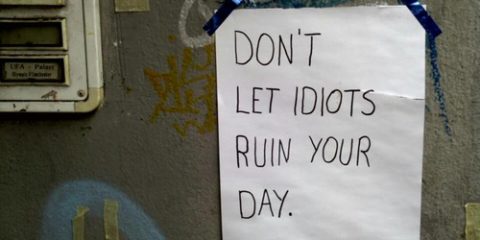 UFA - Palast
DON'T
LET IDIOTS
RUIN YOUR
DAY.